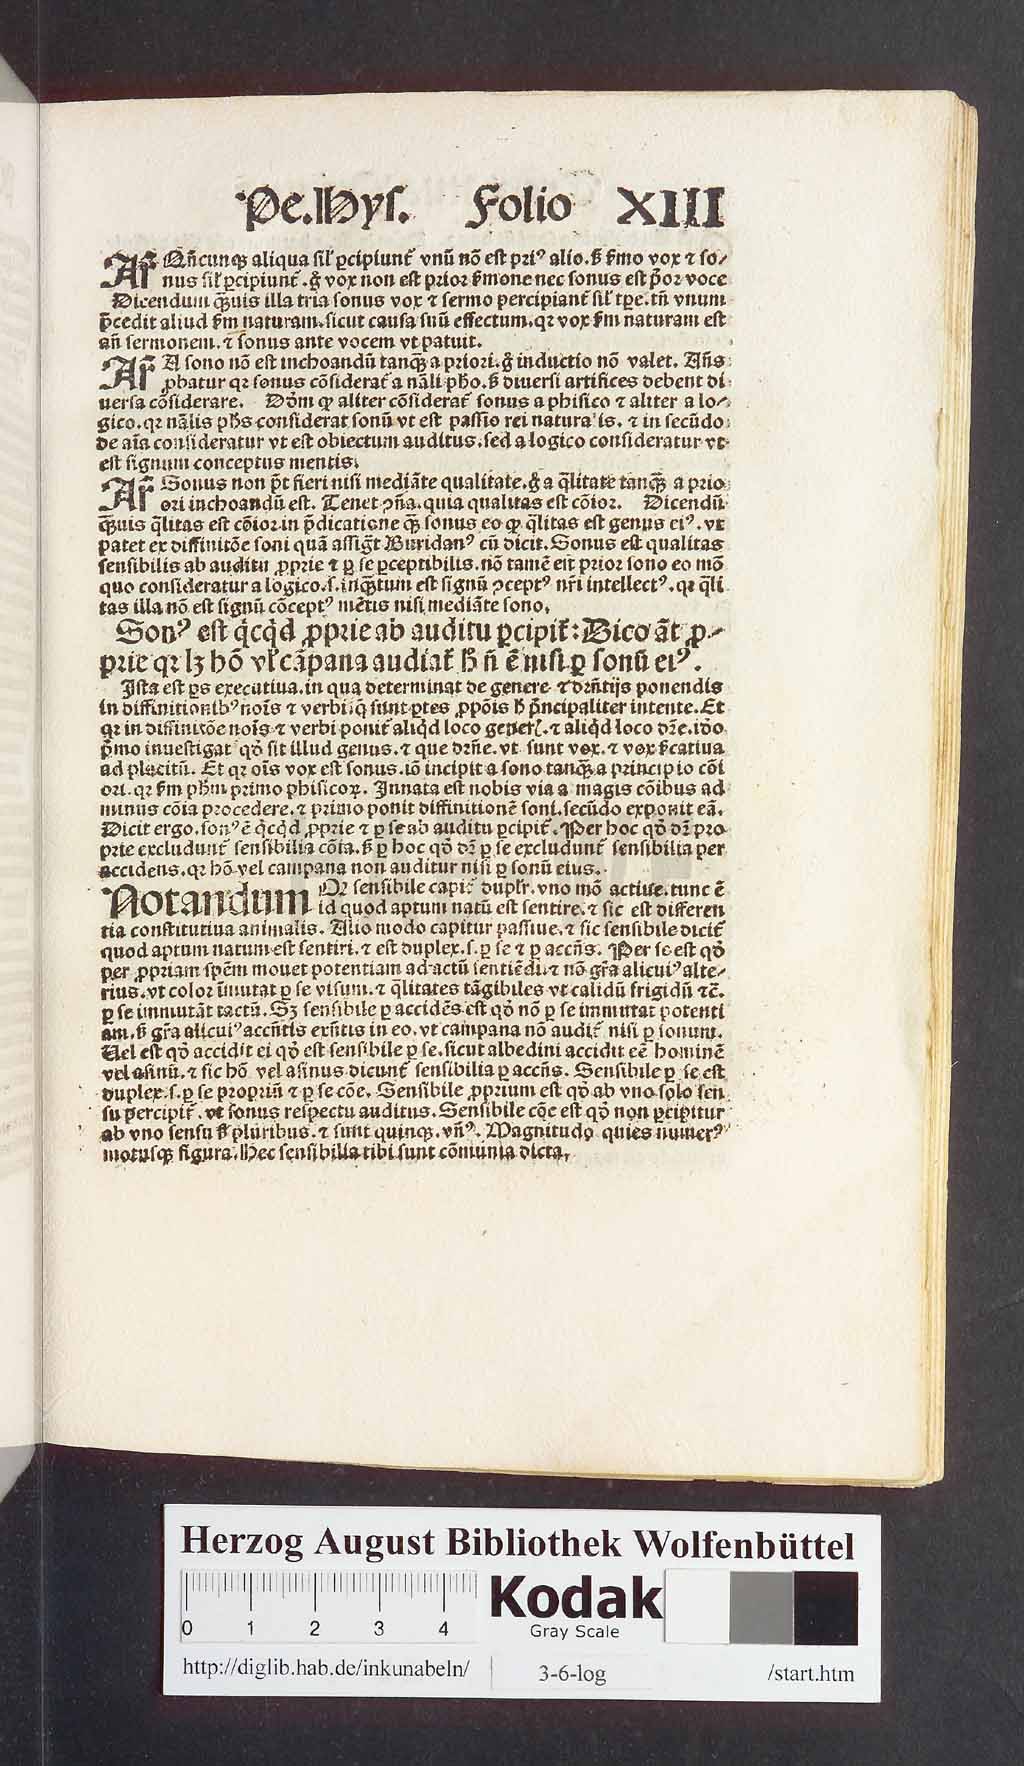 Pe.Hys. Folio XIII
Ar̃ Qñcunqꝫ aliqua sil̃ ꝑcipiunt̃ vnũ nõ est priꝰ alio. s̃ s̃mo vox ⁊ so⸗
nus sil̃ ꝑcipiunt̃. g̃ vox non est prior s̃mone nec sonus est p̃or voce
Dicendum q̃uis illa tria sonus vox ⁊ sermo percipiant̃ sil̃ tp̃e. tñ vnum
p̃cedit aliud s̃m naturam. sicut causa suũ effectum. qꝛ vox s̃m naturam est
añ sermonem. ⁊ sonus ante vocem vt patuit.
Ar̃ A sono nõ est inchoandũ tanq̃ a priori. g̃ inductio nõ valet. Añs
ꝓbatur qꝛ sonus cõsiderat̃ a nãli pħo. s̃ diuersi artifices debent di
uersa cõsiderare. Dõm ꝙ aliter cõsiderat̃ sonus a phisico ⁊ aliter a lo⸗
gico. qꝛ nãlis pħs considerat sonũ vt est passio rei naturalis. ⁊ in secũdo
de aĩa consideratur vt est obiectum auditus. sed a logico consideratur vt
est signum conceptus mentis.
Ar̃ Sonus non p̃t fieri nisi mediãte qualitate. g̃ a q̃litate tanq̃ a prio
ori inchoandũ est. Tenet ↄ̃ña. quia qualitas est cõior. Dicendũ
q̃uis q̃litas est cõior in p̃dicatione q̃ sonus eo ꝙ q̃litas est genus eiꝰ. vt
patet ex diffinitõe soni quã assig̃t Buridanꝰ cũ dicit. Sonus est qualitas
sensibilis ab auditu ꝓprie ⁊ ꝑ se ꝑceptibilis. nõ tamẽ est prior sono eo mõ
quo consideratur a logico. s. inq̃tum est signũ ↄceptꝰ nr̃i intellectꝰ. qꝛ q̃li
tas illa nõ est signũ cõceptꝰ mẽtis nisi mediãte sono.
Sonꝰ est q̇cq̇d ꝓprie ab auditu ꝑcipit̃: Dico ãt ꝓ⸗
prie qꝛ lꝫ hõ vl̃ cãpana audiat̃ ħ ñ ẽ nisi ꝑ sonũ eiꝰ.
Ista est ꝑs executiua. in qua determinat de genere ⁊ drñtijs ponendis
in diffinitionibꝰ noĩs ⁊ verbi. q̃ sunt ꝑtes ꝓpõis ħ p̃ncipaliter intente. Et
qꝛ in diffinitõe noĩs ⁊ verbi ponit̃ aliq̇d loco gener̃. ⁊ aliq̇d loco dr̃e. iõo
p̃mo inuestigat qõ sit illud genus. ⁊ que drñe. vt sunt vox. ⁊ vox s̃catiua
ad placitũ. Et qꝛ oĩs vox est sonus. iõ incipit a sono tanq̃ a principio cõi
ori. qꝛ s̃m pħm primo phisicoꝝ. Innata est nobis via a magis cõibus ad
minus cõia procedere. ⁊ primo ponit diffinitionẽ soni. secũdo exponit eã.
Dicit ergo. sonꝰ ẽ q̇cq̇d ꝓprie ⁊ ꝑ se ab auditu ꝑcipit̃. Per hoc qõ dr̃ pro
prie excludunt̃ sensibilia cõia. s̃ ꝑ hoc qõ dr̃ ꝑ se excludunt̃ sensibilia per
accidens. qꝛ hõ vel campana non auditur nisi ꝑ sonũ eius.
Notandum Qꝛ sensibile capit̃ duplr̃. vno mõ actiue. tunc ẽ
id quod aptum natũ est sentire. ⁊ sic est differen
tia constitutiua animalis. Alio modo capitur passiue. ⁊ sic sensibile dicit̃
quod aptum natum est sentiri. ⁊ est duplex. s. ꝑ se ⁊ ꝑ accñs. Per se est qõ
per ꝓpriam spẽm mouet potentiam ad actũ sentiẽdi. ⁊ nõ gr̃a alicuiꝰ alte⸗
rius. vt color ĩmutat ꝑ se visum. ⁊ q̃litates tãgibiles vt calidũ frigidũ ⁊c̃.
ꝑ se immutãt tactũ. Sꝫ sensibile ꝑ accidẽs est qõ nõ ꝑ se immutat potenti
am. s̃ gr̃a alicuiꝰ accñtis exñtis in eo. vt campana nõ audit̃ nisi ꝑ sonum.
Uel est qõ accidit ei qõ est sensibile ꝑ se. sicut albedini accidit eẽ hominẽ
vel asinũ. ⁊ sic hõ vel asinus dicunt̃ sensibilia ꝑ accñs. Sensibile ꝑ se est
duplex. s. ꝑ se propriũ ⁊ ꝑ se cõe. Sensibile ꝓprium est qõ ab vno solo sen
su percipit̃. vt sonus respectu auditus. Sensibile cõe est qõ non ꝑcipitur
ab vno sensu s̃ pluribus. ⁊ sunt quinqꝫ. vñꝰ. Magnitudo quies numerꝰ
motusqꝫ figura. Hec sensibilia tibi sunt cõmunia dicta.
Herzog August Bibliothek Wolfenbüttel
0 1 2 3 4
Kodak
Gray Scale
http://diglib.hab.de/inkunabeln/ 3-6-log /start.htm